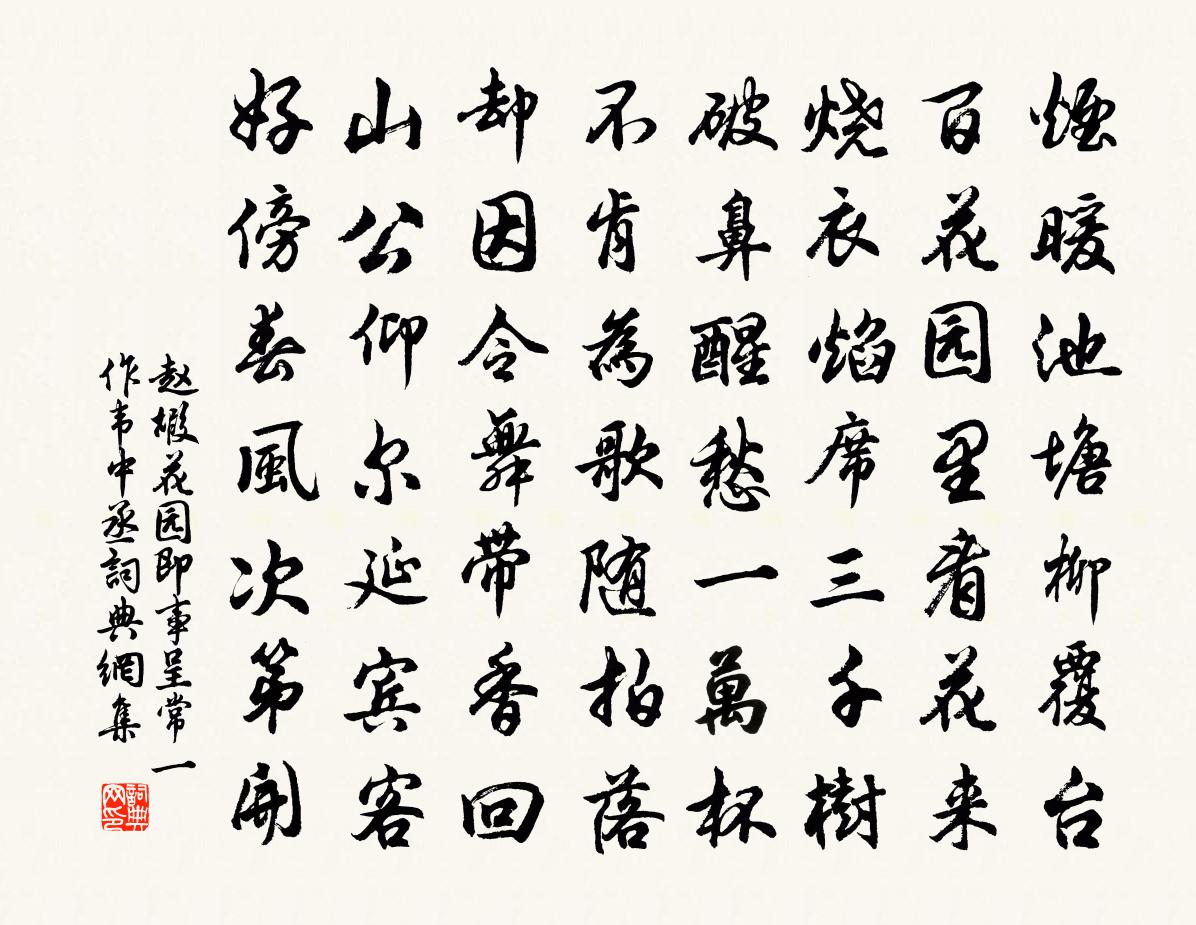 煙暖池塘柳覆台
百花园里看花来
烧衣焰席三千樹
破鼻醒愁一萬杯
不肯為歌随拍落
却因令舞带香回
山公仰尔延宾客
好傍春風次第開
赵嘏花园即事呈常一
作韦中丞詞典網集
詞典
网印